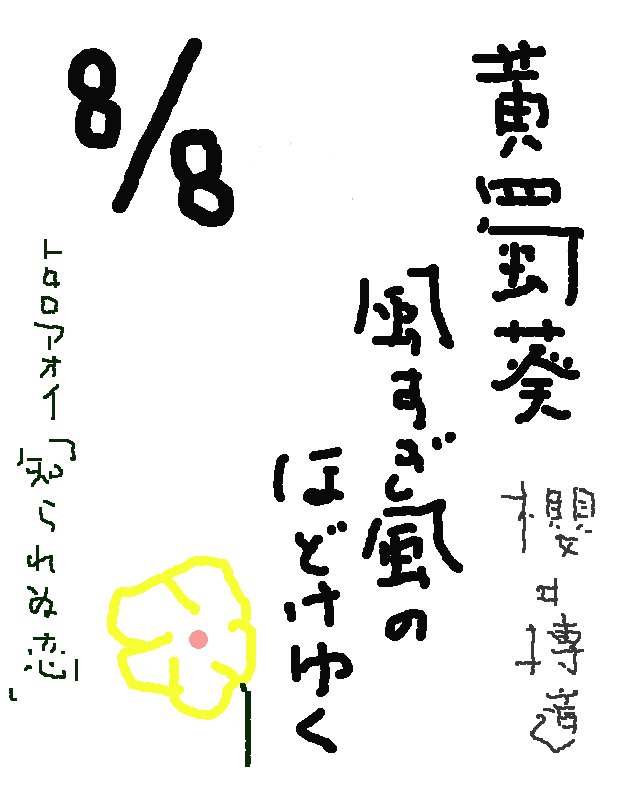 黄蜀葵
風すぎ風の
ほどけゆく
櫻井博道
8/8
トロロアオイ「知られぬ恋」